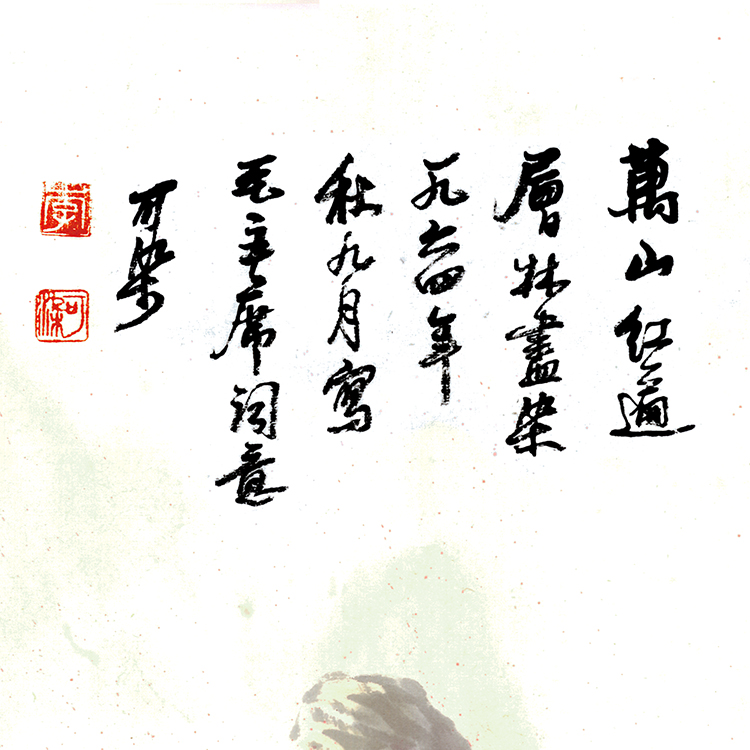 萬山紅遍
層林盡染
一九六四年
秋九月寫
毛主席詞意
可染
李
可染